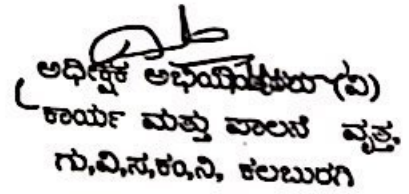 ಅಧೀಕ್ಷಕ ಅಭಿಯಂತರರು (ವಿ)
ಕಾರ್ಯ ಮತ್ತು ಪಾಲನೆ ವೃತ್ತ,
ಗು,ವಿ,ಸ,ಕಂ,ನಿ, ಕಲಬುರಗಿ